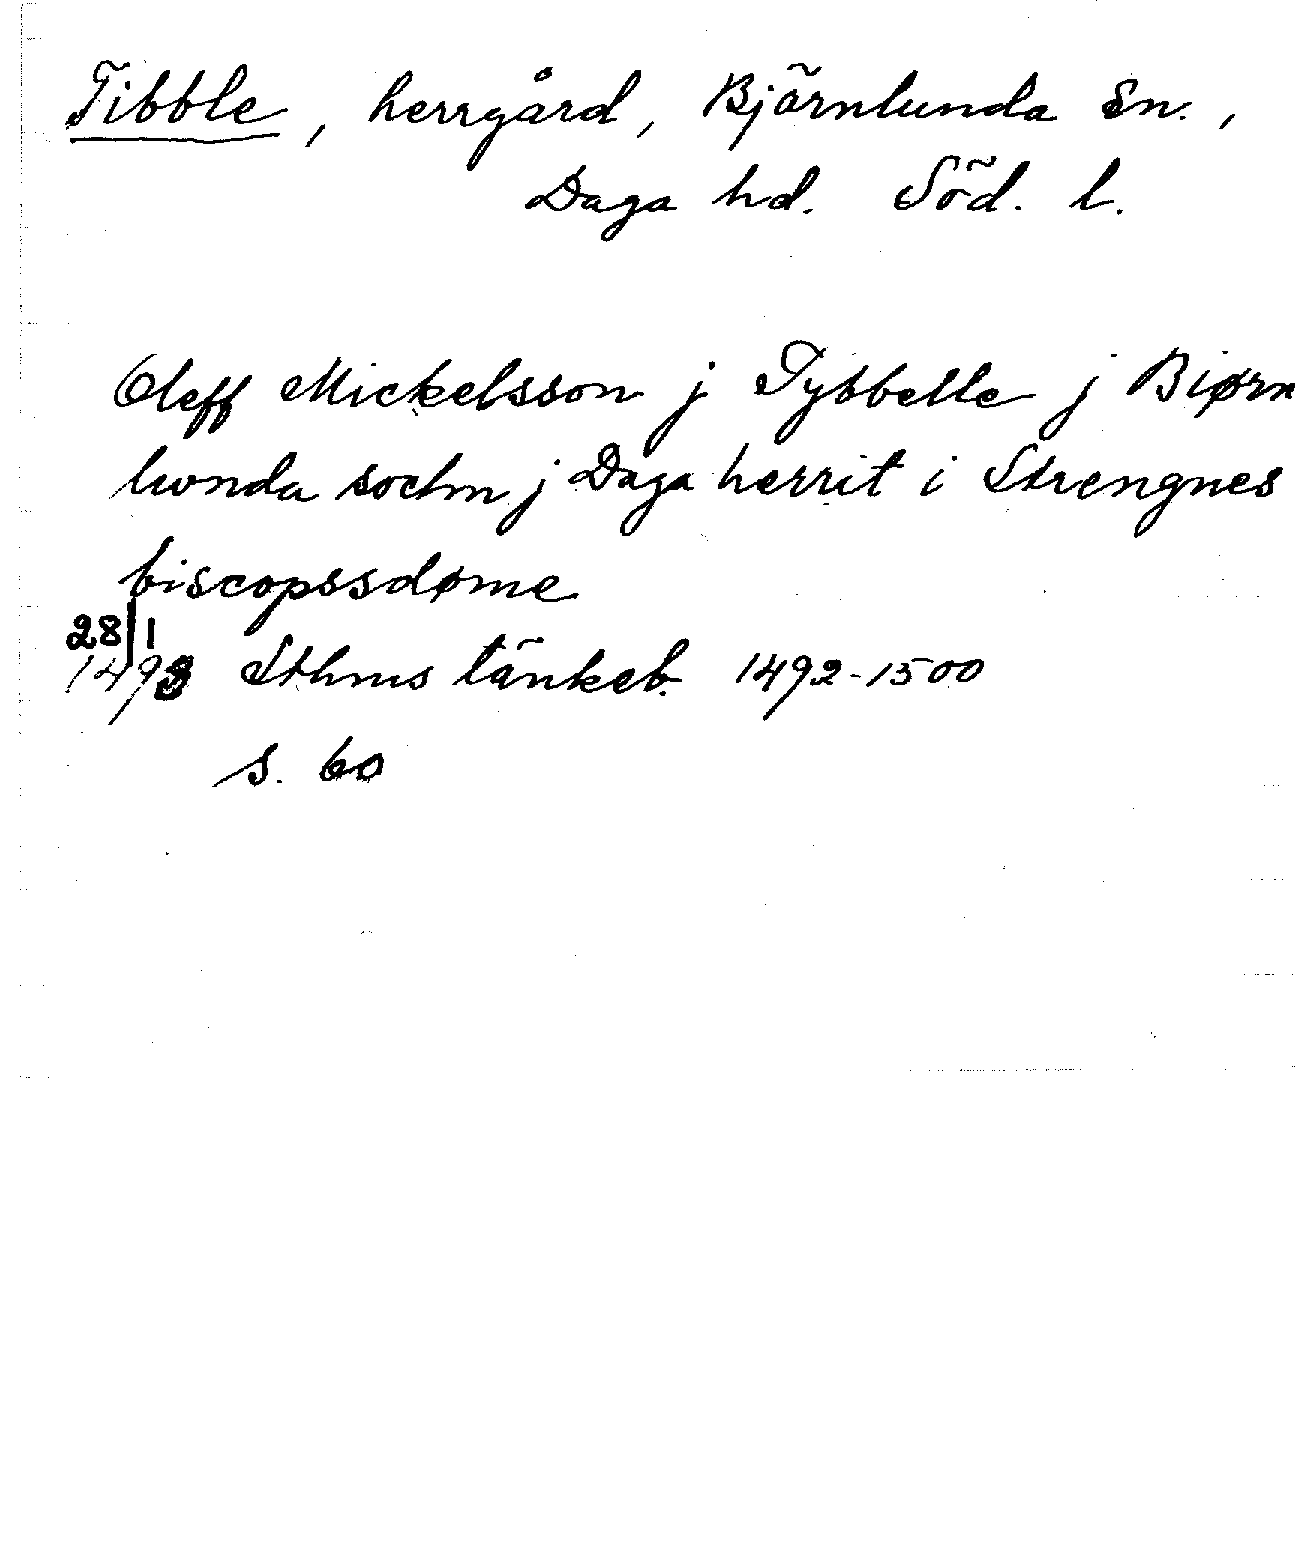 Tibble, herrgård, Björnlunda sn.,
Daga hd. Söd. l.
Oleff Mickelsson j Tybbelle j Biørn
lwnda sochn j Daga herrit i Strengnes
biscopssdøme
28/1
1493 Sthms tänkeb. 1492-1500
s. 60